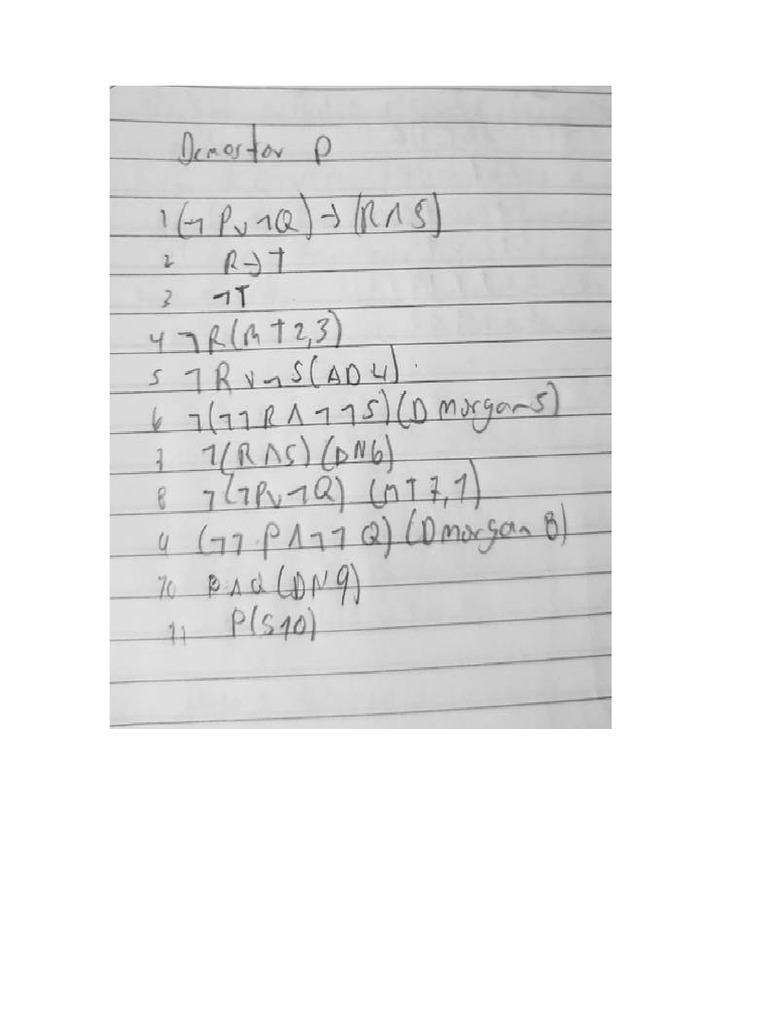 Demostrar P
1 (¬P∨¬Q)→(R∧S)
2 R→T
3 ¬T
4 ¬R(MT2,3)
5 ¬R∨¬S(AD4)
6 ¬(¬¬R∧¬¬S)(DMorgan5)
7 ¬(R∧S)(DN6)
8 ¬(¬P∨¬Q) (MT7,1)
9 (¬¬P∧¬¬Q)(DMorgan 8)
10 P∧Q(DN9)
11 P(S10)